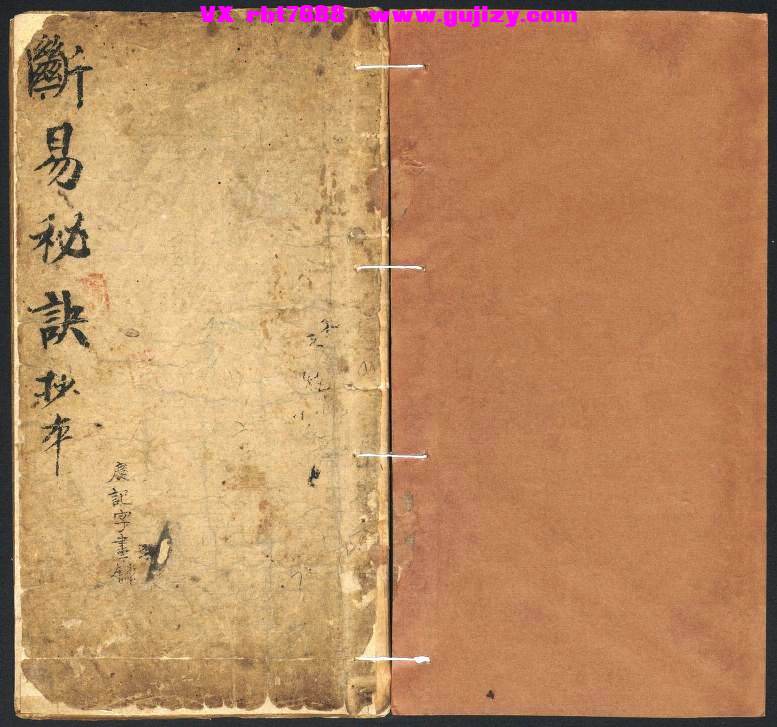 VX rbt7888 www.gujizy.com
斷易秘訣抄本
廣記字畫舖